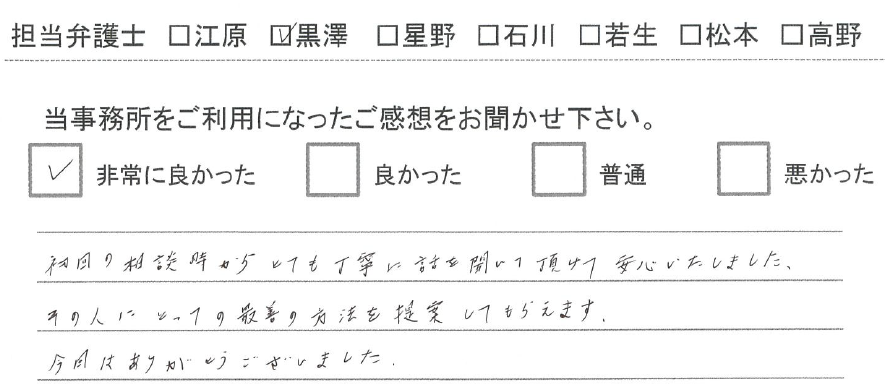 担当弁護士 □江原 ☑黒澤 □星野 □石川 □若生 □松本 □高野
当事務所をご利用になったご感想をお聞かせ下さい。
☑ 非常に良かった □ 良かった □ 普通 □ 悪かった
初回の相談時からとても丁寧に話を聞いて頂けて安心いたしました、
その人にとっての最善の方法を提案してもらえます。
今回はありがとうございました.